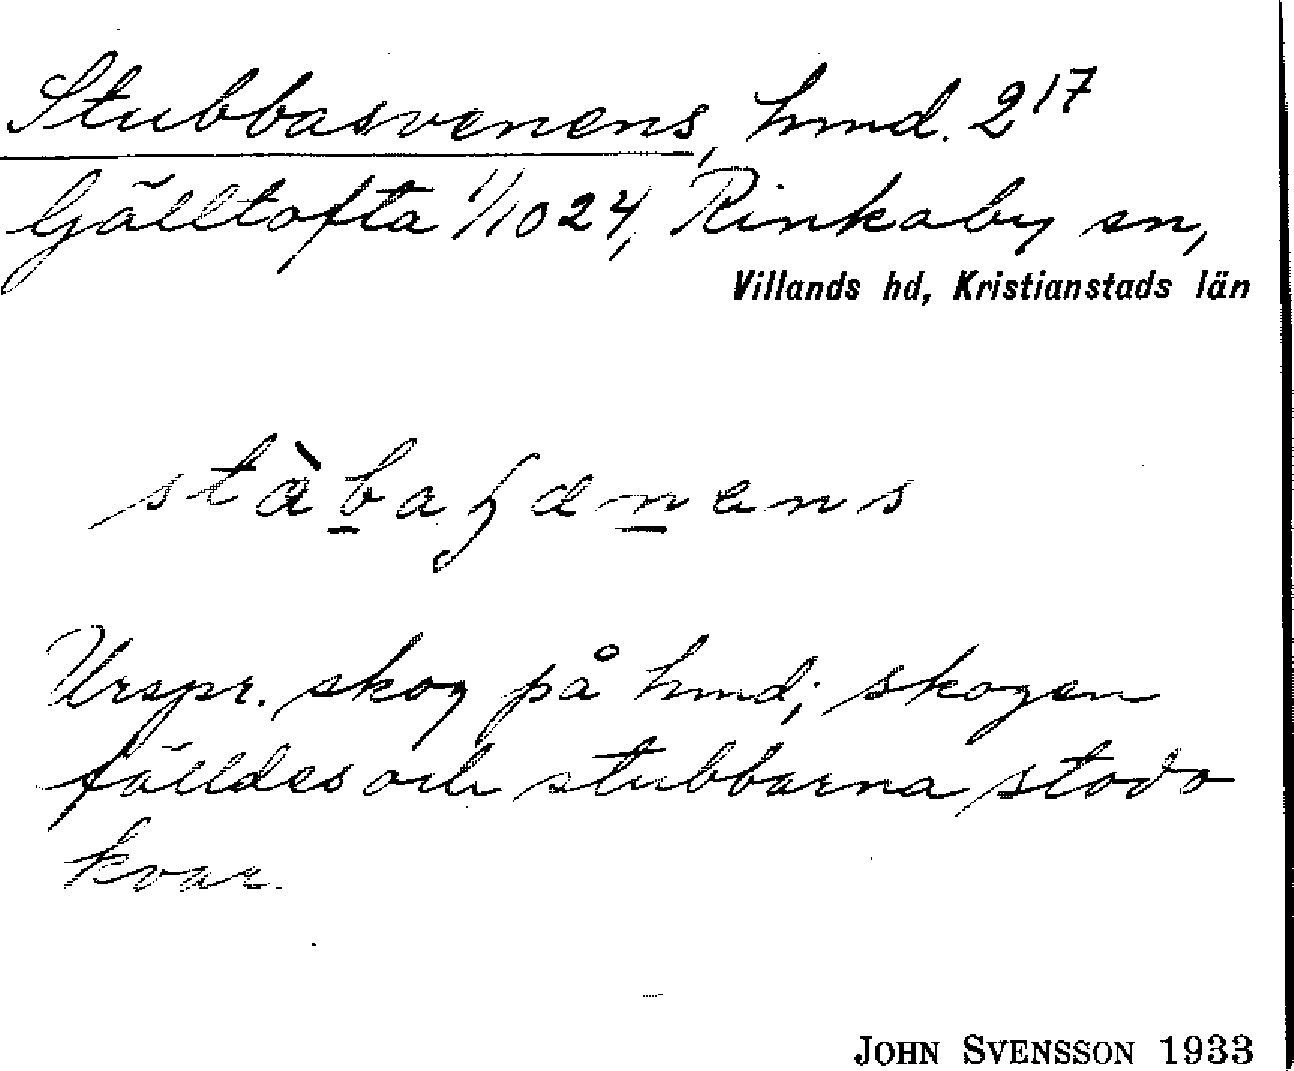 Stubbasvenens, hmd. 2¹⁷
Gjälltofta 1/1024, Rinkaby sn,
Villands hd, Kristianstads län
Urspr. skog på hmd; skogen
fälldes och stubbarna stodo
kvar.
JOHN SVENSSON 1933